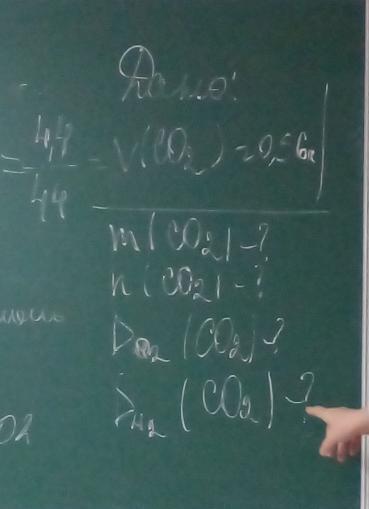 Дано:
= 4,4 / 44
V(CO2) = 0,56л
m(CO2) - ?
n(CO2) - ?
D (CO2) - ?
DH2 (CO2) - ?
O2